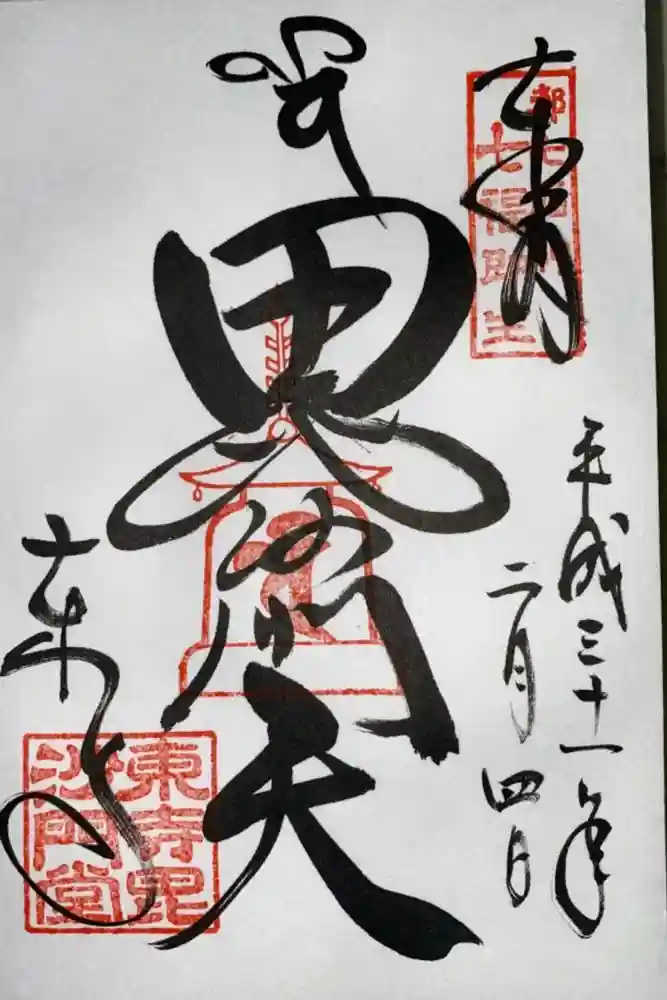 奉拝
七福即生
平成三十一年
二月四日
毘沙門天
東寺
東寺毘
沙門堂